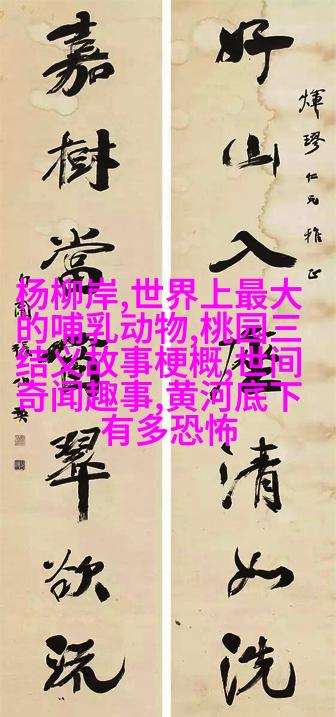 煇璆仁兄雅正
好山入座清如洗
嘉樹當翠欲流
杨柳岸,世界上最大
的哺乳动物,桃园三
结义故事梗概,世间
奇闻趣事,黄河底下
有多恐怖